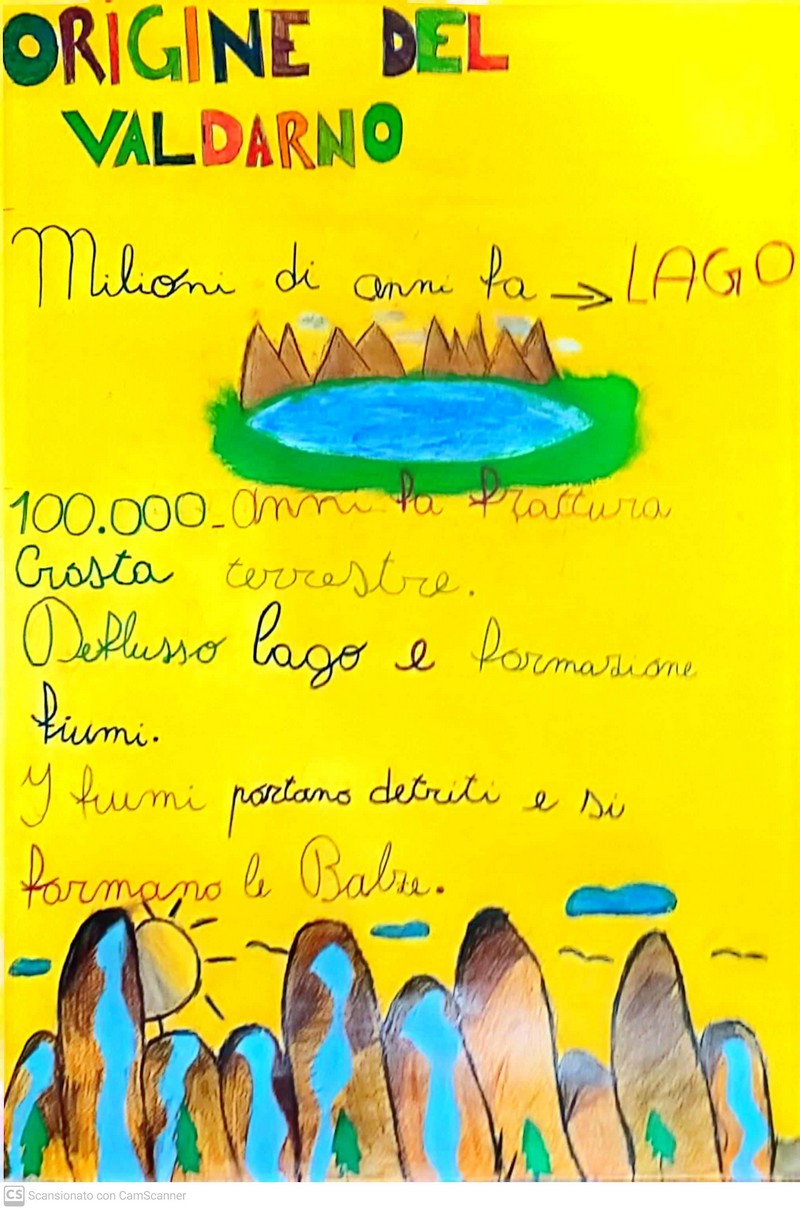 ORIGINE DEL
VALDARNO
Milioni di anni fa → LAGO
100.000 anni fa frattura
Crosta terrestre.
Deflusso lago e formazione
fiumi.
I fiumi portano detriti e si
formano le Balze.
CS Scansionato con CamScanner